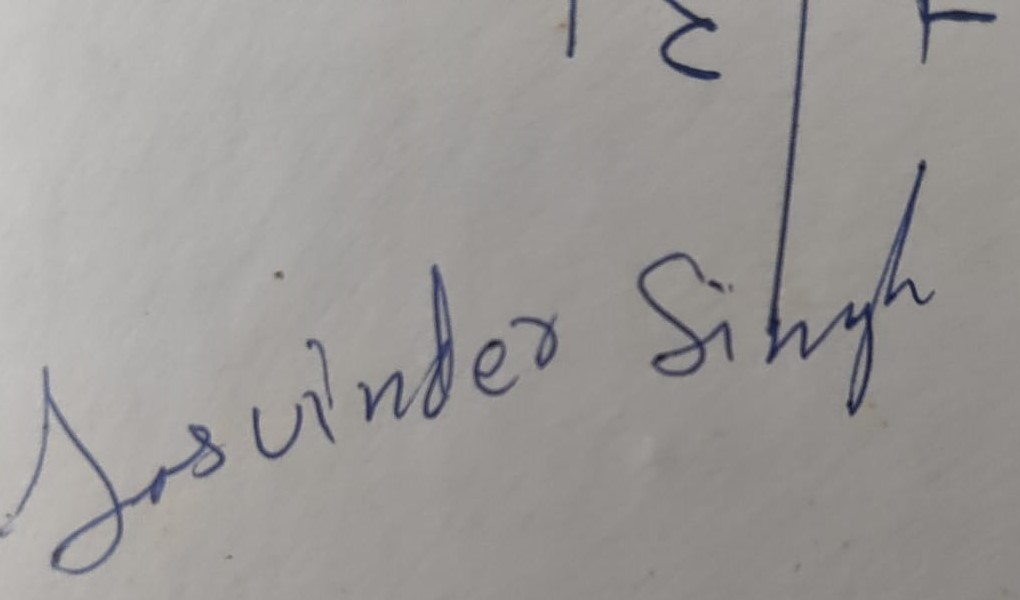 Jasvinder Singh